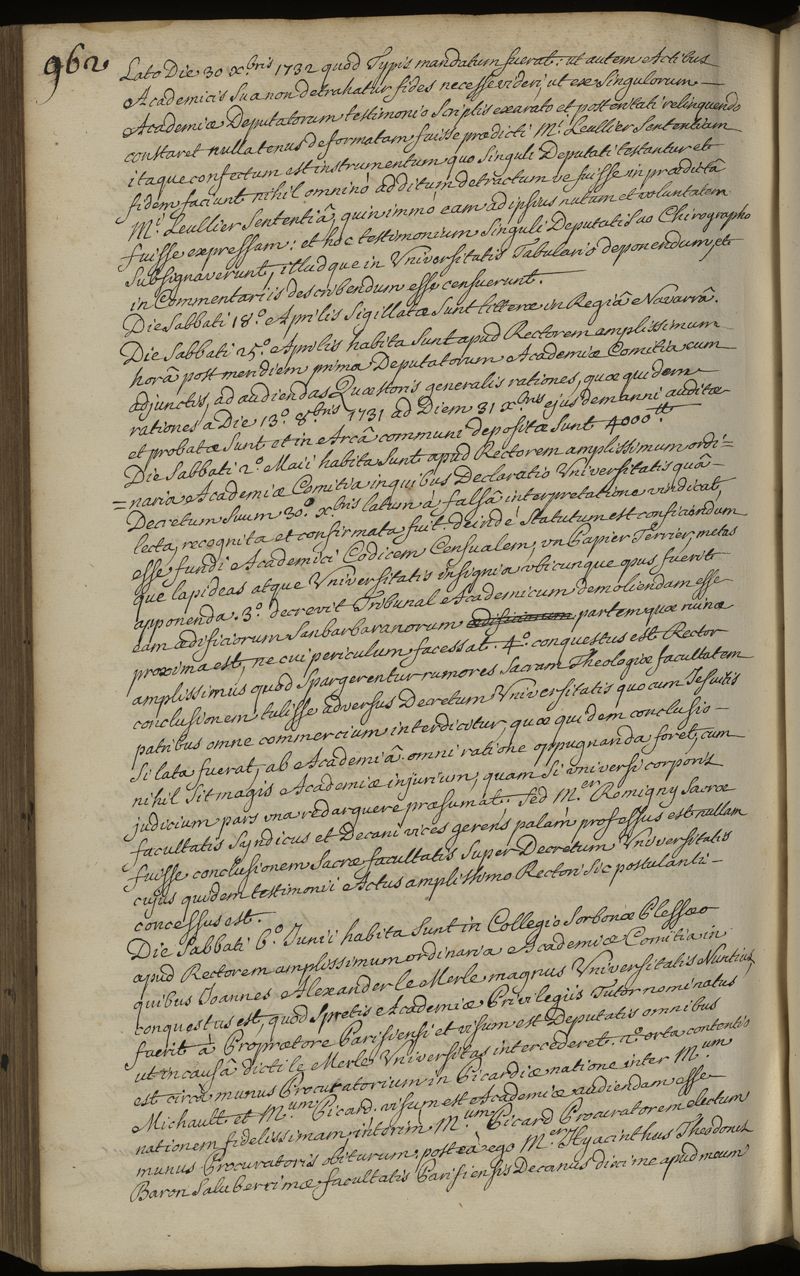 962.
Lato Die 30 x.bris 1732 quod Typis mandatum fuerat: ut autem Actibus
Academicis sua non detrahatur fides necesse videri, ut ex singulorum
Academiæ Deputatorum testimonio scriptis exarato et posteritati relinquendo
constaret nullatenus deformatam fuisse prædicti M.i Leullier sententiam
itaque confectum est instrumentum quo singuli Deputati testantur et
fidem faciunt nihil omninò additum detractum ve fuisse in prædictâ
M.i Leullier sententiâ, quin immò eam ad ipsius nutum et voluntatem
fuisse expressam: et hoc testimonium singuli Deputati suo Chirographo
subsignaverunt, illudque in Universitatis Tabulario deponendum, et
in Commentariis describendum esse censuerunt.
Die Sabbati 18.o Aprilis sigillatæ sunt litteræ in Regiâ Navarrâ.
Die Sabbati 25.o Aprilis habita sunt apud Rectorem amplissimum
horâ post meridiem prima Deputatorum Academiæ Comitia cum
adjunctis, ad audiendas Quæstoris generalis rationes, quæ quidem
rationes a Die 13.o 8.bris 1731 ad Diem 31 x.bris ejusdem anni auditæ
et probatæ sunt et in Arcâ communi depositæ sunt 4000.tt
Die Sabbati 2.o Maii habita sunt apud Rectorem amplissimum ordi=
=naria Academiæ Comitia in quibus Declaratio Universitatis quâ
Decretum suum 30.o x.bris latum à falsâ interpretatione vindicat,
lecta, recognita et confirmata fuit. deindè statutum est conficiendum
esse fundi Academici Codicem Censualem, un Papier Terrier, metas
que lapideas atque Universitatis insignia ubicunque opus fuerit
apponenda. 3.o decrevit Tribunal Academicum demoliendam esse
eam ædificiorum Sanbarbaranorum ædificiorum partem quæ ruinæ
proxima est, ne cui periculum facessat. 4.o conquestus est Rector
amplissimus quod spargerentur rumores Sacram Theologiæ facultatem
conclusionem tulisse adversus Decretum Universitatis quo cum Jesuitis
patribus omne commercium interdicitur, quæ quidem conclusio
si lata fuerat, ab Academiâ omni ratione oppugnanda foret, cum
nihil sit magis Academiæ injurium, quam si universi corporis
judicium pars una redarguere præsumat. Sed M.er Romigny Sacræ
facultatis Syndicus et Decani vices gerens palàm professus est nullam
fuisse conclusionem Sacræ facultatis super Decretum Universitatis
cujus quidem testimonii Actus amplissimo Rectori sic postulanti
concessus est.
Die Sabbati 6.o Junii habita sunt in Collegio Sorbonæ Plessæo
apud Rectorem amplissimum ordinaria Academiæ Comitia in
quibus Joannes Alexander le Merle magnus Universitatis Nuntius
conquestus est, quod spretis Academiæ Privilegiis Tutor nominatus
fuerit à Proprætore Parisiensi et visum est Deputatis omnibus
ut in causâ dicti le Merle Universitas intercederet. 2.o orta contentio
est circa munus Procuratorium in Picardiæ natione inter M.um
Michault et M.um Picard. visum est Academiæ audiendam esse
nationem fidelissimam, interim M.um Picard Procuratorem electum
munus Procuratoris obiturum. posteà ego M.er Hyacinthus Theodorus
Baron Saluberrimæ facultatis Parisiensis Decanus dixi me apud meum